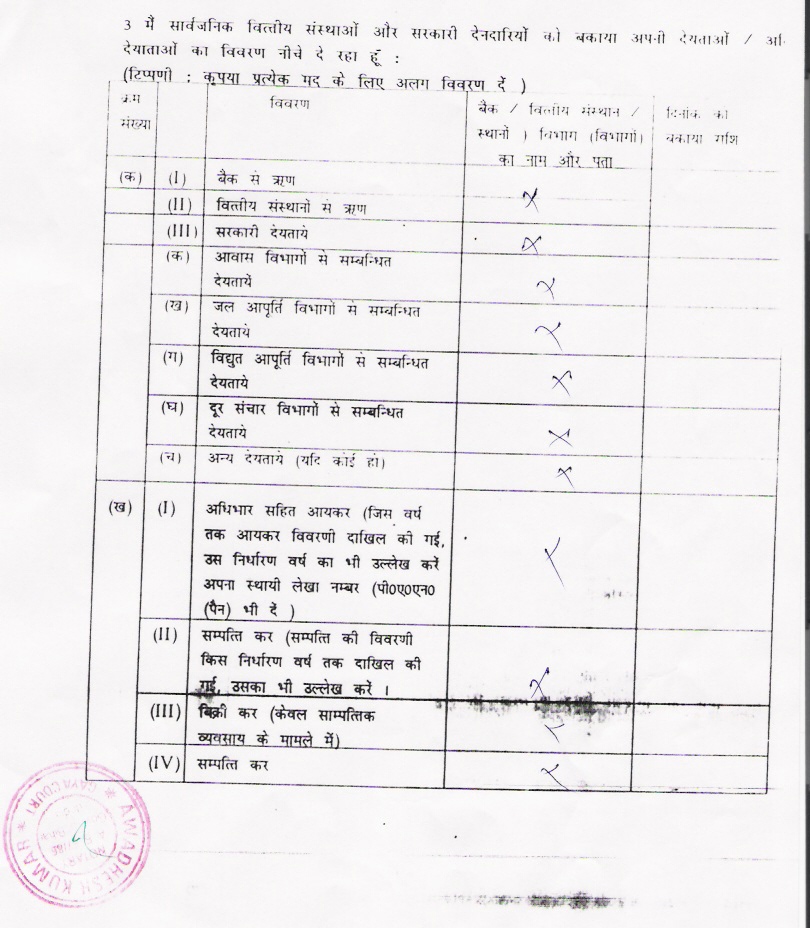 3 मैं सार्वजनिक वित्तीय संस्थाओं और सरकारी देनदारियों को बकाया अपनी देयताओं /
देयाताओं का विवरण नीचे दे रहा हूं :
(टिप्पणी : कृपया प्रत्येक मद के लिए अलग विवरण दें )
क्रम
संख्या
विवरण
बैंक / वित्तीय संस्थान /
स्थानों ) विभाग (विभागों)
का नाम और पता
दिनांक को
बकाया राशि
(क) (I) बैंक से ऋण
(II) वित्तीय संस्थानों से ऋण X
(III) सरकारी देयतायें X
(क) आवास विभागों से सम्बन्धित
देयतायें X
(ख) जल आपूर्ति विभागों से सम्बन्धित
देयतायें X
(ग) विद्युत आपूर्ति विभागों से सम्बन्धित
देयताये X
(घ) दूर संचार विभागों से सम्बन्धित
देयताये X
(च) अन्य देयताये (यदि कोई हो) X
(ख) (I) अधिभार सहित आयकर (जिस वर्ष
तक आयकर विवरणी दाखिल की गई,
उस निर्धारण वर्ष का भी उल्लेख करें X
अपना स्थायी लेखा नम्बर (पी0ए0एन0
(पैन) भी दें )
(II) सम्पत्ति कर (सम्पत्ति की विवरणी
किस निर्धारण वर्ष तक दाखिल की
गई, उसका भी उल्लेख करें । X
(III) बिक्री कर (केवल साम्पत्तिक
व्यवसाय के मामले में) X
(IV) सम्पत्ति कर X
AWADHESH KUMAR
GAYA COURT